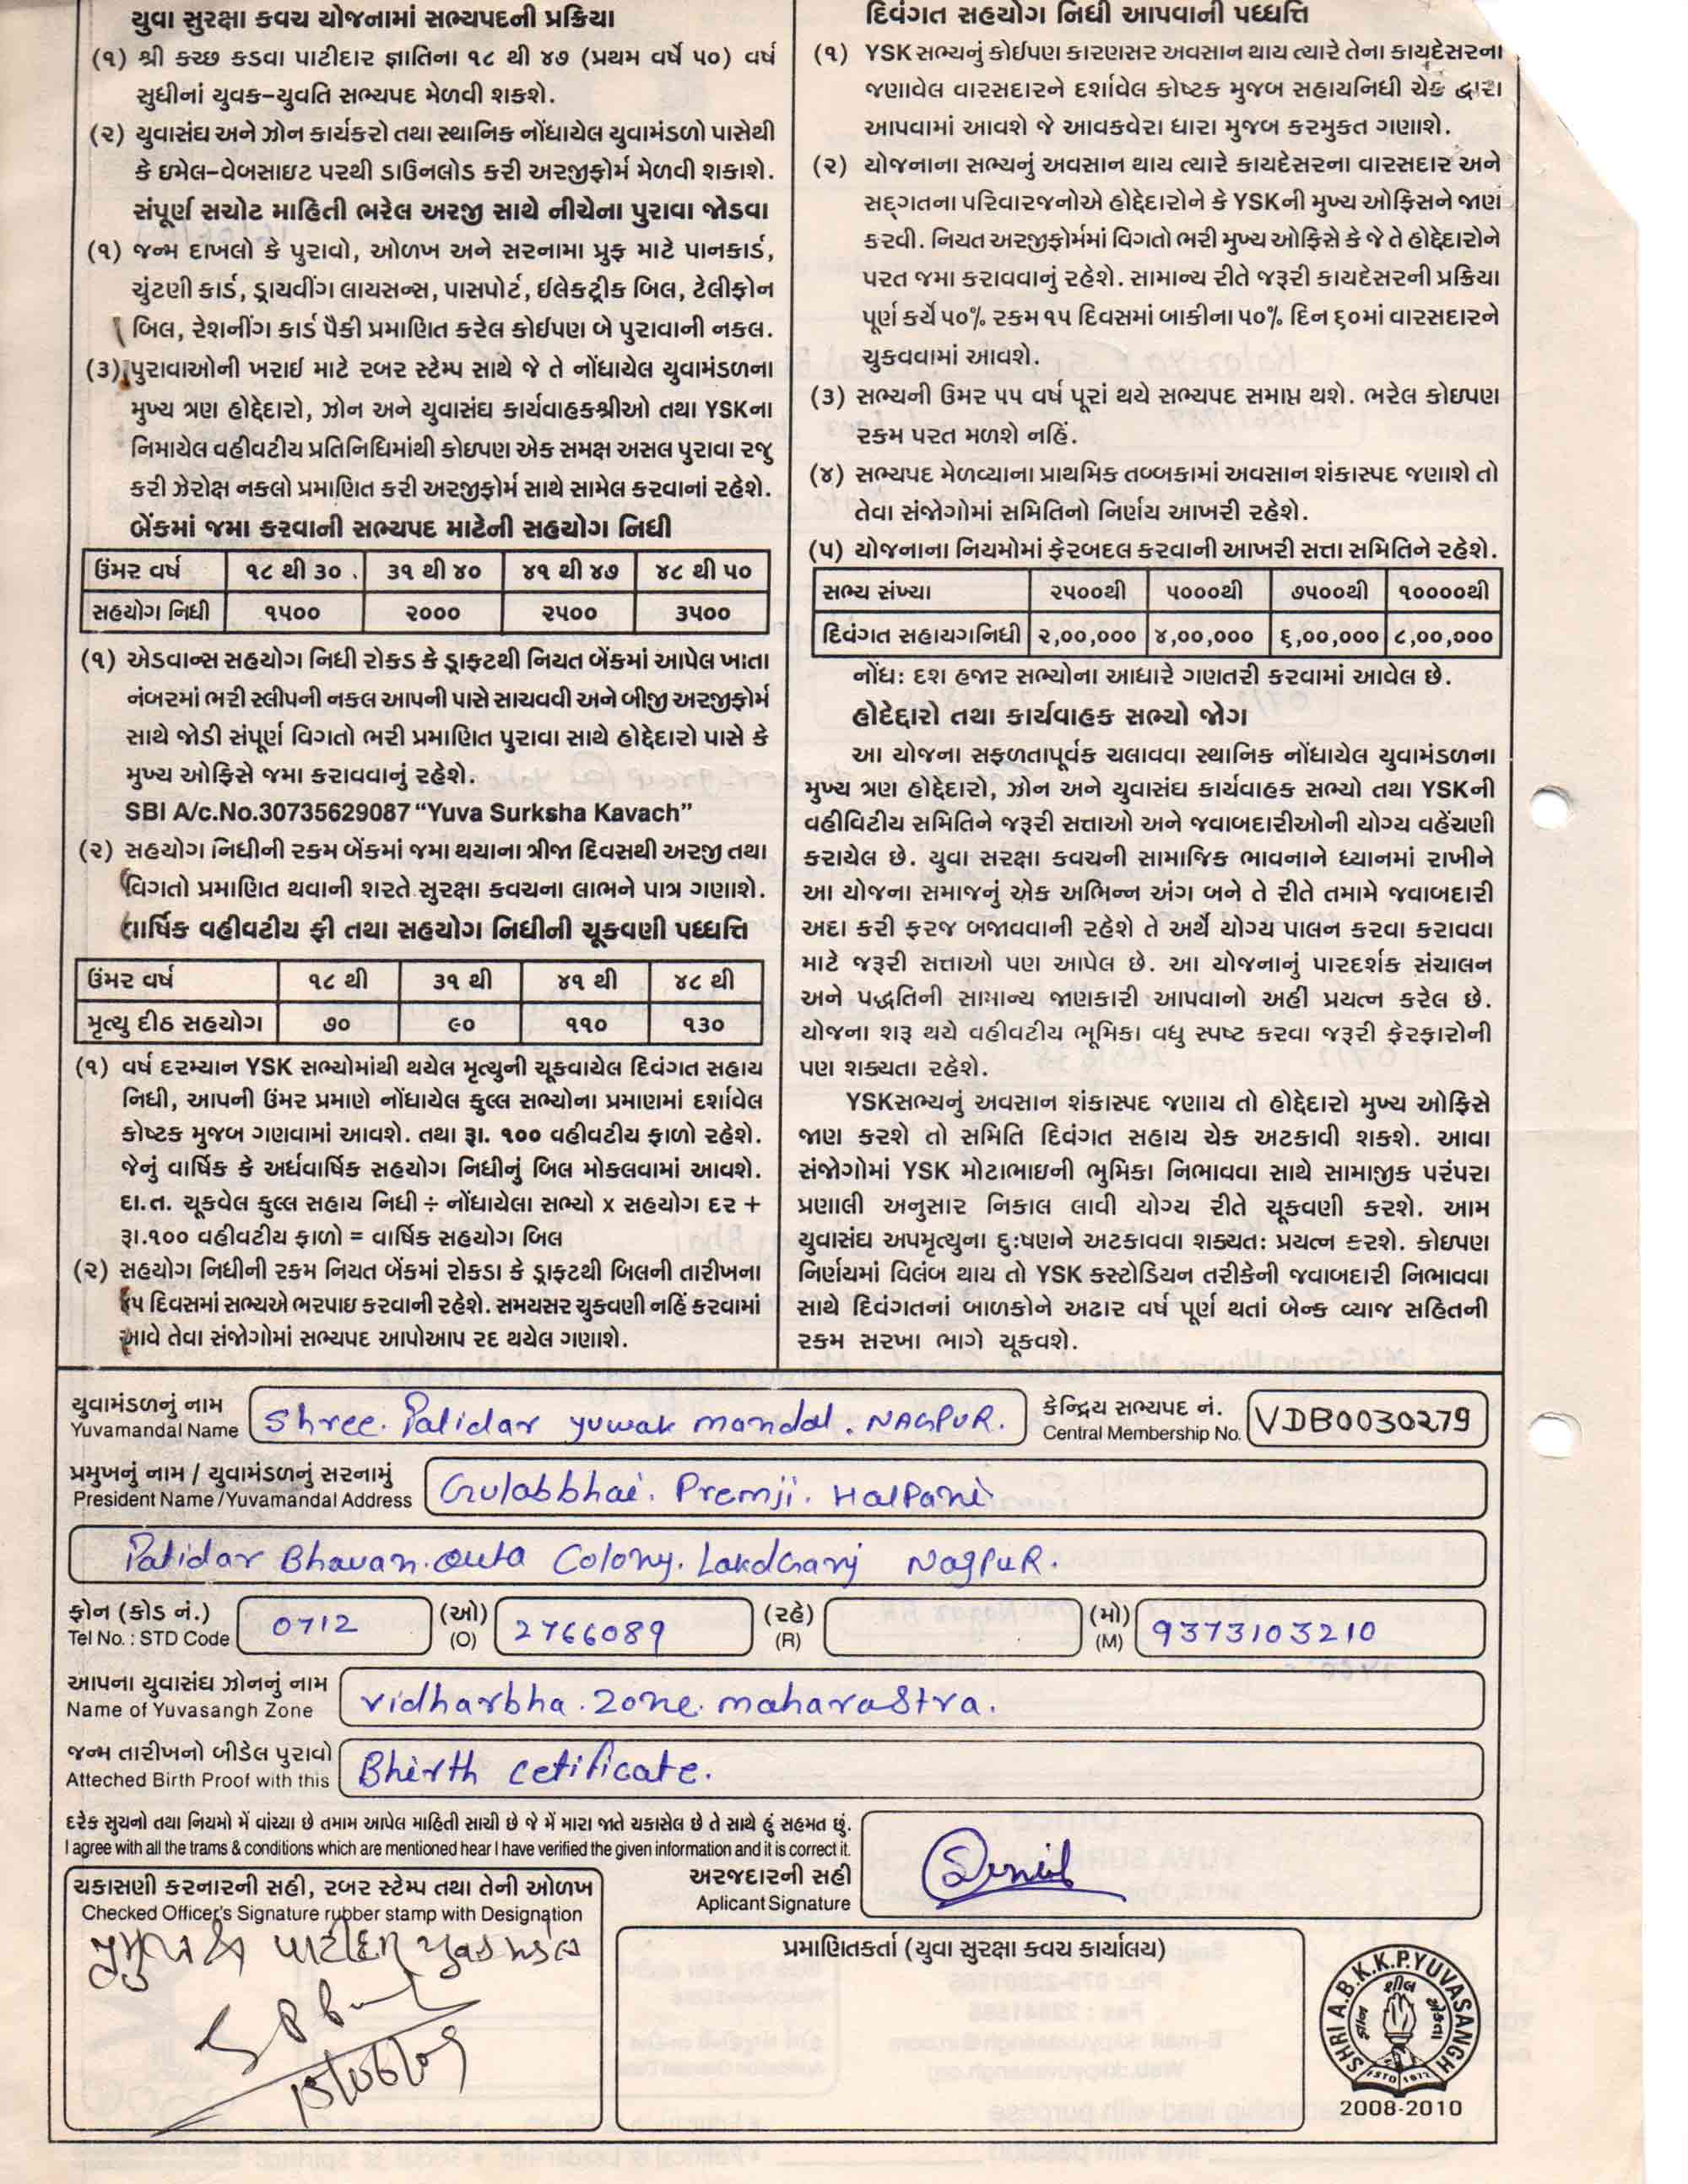 યુવા સુરક્ષા કવચ યોજનામાં સભ્યપદની પ્રક્રિયા
(૧) શ્રી કચ્છ કડવા પાટીદાર જ્ઞાતિના ૧૮ થી ૪૭ (પ્રથમ વર્ષે ૫૦) વર્ષ
સુધીનાં યુવક-યુવતિ સભ્યપદ મેળવી શકશે.
(૨) યુવાસંઘ અને ઝોન કાર્યકરો તથા સ્થાનિક નોંધાયેલ યુવામંડળો પાસેથી
કે ઇમેલ-વેબસાઇટ પરથી ડાઉનલોડ કરી અરજીફોર્મ મેળવી શકાશે.
સંપૂર્ણ સચોટ માહિતી ભરેલ અરજી સાથે નીચેના પુરાવા જોડવા
(૧) જન્મ દાખલો કે પુરાવો, ઓળખ અને સરનામા પ્રુફ માટે પાનકાર્ડ,
ચુંટણી કાર્ડ, ડ્રાયવીંગ લાયસન્સ, પાસપોર્ટ, ઈલેકટ્રીક બિલ, ટેલીફોન
બિલ, રેશનીંગ કાર્ડ પૈકી પ્રમાણિત કરેલ કોઈપણ બે પુરાવાની નકલ.
(૩) પુરાવાઓની ખરાઈ માટે રબર સ્ટેમ્પ સાથે જે તે નોંધાયેલ યુવામંડળના
મુખ્ય ત્રણ હોદ્દેદારો, ઝોન અને યુવાસંઘ કાર્યવાહકશ્રીઓ તથા YSKના
નિમાયેલ વહીવટીય પ્રતિનિધિમાંથી કોઇપણ એક સમક્ષ અસલ પુરાવા રજુ
કરી ઝેરોક્ષ નકલો પ્રમાણિત કરી અરજીફોર્મ સાથે સામેલ કરવાનાં રહેશે.
બેંકમાં જમા કરવાની સભ્યપદ માટેની સહયોગ નિધી
ઉંમર વર્ષ ૧૮ થી ૩૦ ૩૧ થી ૪૦ ૪૧ થી ૪૭ ૪૮ થી ૫૦
સહયોગ નિધી ૧૫૦૦ ૨૦૦૦ ૨૫૦૦ ૩૫૦૦
(૧) એડવાન્સ સહયોગ નિધી રોકડ કે ડ્રાફ્ટથી નિયત બેંકમાં આપેલ ખાતા
નંબરમાં ભરી સ્લીપની નકલ આપની પાસે સાચવવી અને બીજી અરજીફોર્મ
સાથે જોડી સંપૂર્ણ વિગતો ભરી પ્રમાણિત પુરાવા સાથે હોદ્દેદારો પાસે કે
મુખ્ય ઓફિસે જમા કરાવવાનું રહેશે.
SBI A/c.No.30735629087 “Yuva Surksha Kavach”
(૨) સહયોગ નિધીની રકમ બેંકમાં જમા થયાના ત્રીજા દિવસથી અરજી તથા
વિગતો પ્રમાણિત થવાની શરતે સુરક્ષા કવચના લાભને પાત્ર ગણાશે.
વાર્ષિક વહીવટીય ફી તથા સહયોગ નિધીની ચૂકવણી પધ્ધત્તિ
ઉંમર વર્ષ ૧૮ થી ૩૧ થી ૪૧ થી ૪૮ થી
મૃત્યુ દીઠ સહયોગ ૭૦ ૯૦ ૧૧૦ ૧૩૦
(૧) વર્ષ દરમ્યાન YSK સભ્યોમાંથી થયેલ મૃત્યુની ચૂકવાયેલ દિવંગત સહાય
નિધી, આપની ઉંમર પ્રમાણે નોંધાયેલ કુલ્લ સભ્યોના પ્રમાણમાં દર્શાવેલ
કોષ્ટક મુજબ ગણવામાં આવશે. તથા રૂા. ૧૦૦ વહીવટીય ફાળો રહેશે.
જેનું વાર્ષિક કે અર્ધવાર્ષિક સહયોગ નિધીનું બિલ મોકલવામાં આવશે.
દા.ત. ચૂકવેલ કુલ્લ સહાય નિધી ÷ નોંધાયેલા સભ્યો x સહયોગ દર +
રૂા.૧૦૦ વહીવટીય ફાળો = વાર્ષિક સહયોગ બિલ
(૨) સહયોગ નિધીની રકમ નિયત બેંકમાં રોકડા કે ડ્રાફ્ટથી બિલની તારીખના
દિવસમાં સભ્યએ ભરપાઇ કરવાની રહેશે. સમયસર ચુકવણી નહિં કરવામાં
આવે તેવા સંજોગોમાં સભ્યપદ આપોઆપ રદ થયેલ ગણાશે.
દિવંગત સહયોગ નિધી આપવાની પધ્ધત્તિ
(૧) YSK સભ્યનું કોઈપણ કારણસર અવસાન થાય ત્યારે તેના કાયદેસરના
જણાવેલ વારસદારને દર્શાવેલ કોષ્ટક મુજબ સહાયનિધી ચેક દ્વારા
આપવામાં આવશે જે આવકવેરા ધારા મુજબ કરમુકત ગણાશે.
(૨) યોજનાના સભ્યનું અવસાન થાય ત્યારે કાયદેસરના વારસદાર અને
સદ્ગતના પરિવારજનોએ હોદ્દેદારોને કે YSKની મુખ્ય ઓફિસને જાણ
કરવી. નિયત અરજીફોર્મમાં વિગતો ભરી મુખ્ય ઓફિસે કે જે તે હોદ્દેદારોને
પરત જમા કરાવવાનું રહેશે. સામાન્ય રીતે જરૂરી કાયદેસરની પ્રક્રિયા
પૂર્ણ કર્યે ૫૦% રકમ ૧૫ દિવસમાં બાકીના ૫૦% દિન ૬૦માં વારસદારને
ચુકવવામાં આવશે.
(૩) સભ્યની ઉમર ૫૫ વર્ષ પૂરાં થયે સભ્યપદ સમાપ્ત થશે. ભરેલ કોઇપણ
રકમ પરત મળશે નહિં.
(૪) સભ્યપદ મેળવ્યાના પ્રાથમિક તબ્બકામાં અવસાન શંકાસ્પદ જણાશે તો
તેવા સંજોગોમાં સમિતિનો નિર્ણય આખરી રહેશે.
(૫) યોજનાના નિયમોમાં ફેરબદલ કરવાની આખરી સત્તા સમિતિને રહેશે.
સભ્ય સંખ્યા ૨૫૦૦થી ૫૦૦૦થી ૭૫૦૦થી ૧૦૦૦૦થી
દિવંગત સહાયગનિધી ૨,૦૦,૦૦૦ ૪,૦૦,૦૦૦ ૬,૦૦,૦૦૦ ૮,૦૦,૦૦૦
નોંધ: દશ હજાર સભ્યોના આધારે ગણતરી કરવામાં આવેલ છે.
હોદેદ્દારો તથા કાર્યવાહક સભ્યો જોગ
આ યોજના સફળતાપૂર્વક ચલાવવા સ્થાનિક નોંધાયેલ યુવામંડળના
મુખ્ય ત્રણ હોદ્દેદારો, ઝોન અને યુવાસંઘ કાર્યવાહક સભ્યો તથા YSKની
વહીવિટીય સમિતિને જરૂરી સત્તાઓ અને જવાબદારીઓની યોગ્ય વહેંચણી
કરાયેલ છે. યુવા સરક્ષા કવચની સામાજિક ભાવનાને ધ્યાનમાં રાખીને
આ યોજના સમાજનું એક અભિન્ન અંગ બને તે રીતે તમામે જવાબદારી
અદા કરી ફરજ બજાવવાની રહેશે તે અર્થે યોગ્ય પાલન કરવા કરાવવા
માટે જરૂરી સત્તાઓ પણ આપેલ છે. આ યોજનાનું પારદર્શક સંચાલન
અને પદ્ધતિની સામાન્ય જાણકારી આપવાનો અહીં પ્રયત્ન કરેલ છે.
યોજના શરૂ થયે વહીવટીય ભૂમિકા વધુ સ્પષ્ટ કરવા જરૂરી ફેરફારોની
પણ શક્યતા રહેશે.
YSKસભ્યનું અવસાન શંકાસ્પદ જણાય તો હોદ્દેદારો મુખ્ય ઓફિસે
જાણ કરશે તો સમિતિ દિવંગત સહાય ચેક અટકાવી શકશે. આવા
સંજોગોમાં YSK મોટાભાઇની ભુમિકા નિભાવવા સાથે સામાજીક પરંપરા
પ્રણાલી અનુસાર નિકાલ લાવી યોગ્ય રીતે ચૂકવણી કરશે. આમ
યુવાસંઘ અપમૃત્યુના દુઃષણને અટકાવવા શક્યતઃ પ્રયત્ન કરશે. કોઇપણ
નિર્ણયમાં વિલંબ થાય તો YSK કસ્ટોડિયન તરીકેની જવાબદારી નિભાવવા
સાથે દિવંગતનાં બાળકોને અઢાર વર્ષ પૂર્ણ થતાં બેન્ક વ્યાજ સહિતની
રકમ સરખા ભાગે ચૂકવશે.
યુવામંડળનું નામ
Yuvamandal Name Shree. Patidar yuwak mandal. NAGPUR.
કેન્દ્રિય સભ્યપદ નં.
Central Membership No. VDB0030279
પ્રમુખનું નામ / યુવામંડળનું સરનામું
President Name /Yuvamandal Address Gulabbhai. Premji. Halpani
Patidar Bhavan. Colony. Nagpur.
ફોન (કોડ નં.) (ઓ) (રહે) (મો)
Tel No. : STD Code 0712 (O) 2766089 (R) (M) 9373103210
આપના યુવાસંઘ ઝોનનું નામ
Name of Yuvasangh Zone vidharbha. zone. maharastra.
જન્મ તારીખનો બીડેલ પુરાવો
Atteched Birth Proof with this Bhirth cetificate.
દરેક સુચનો તથા નિયમો મેં વાંચ્યા છે તમામ આપેલ માહિતી સાચી છે જે મેં મારા જાતે ચકાસેલ છે તે સાથે હું સહમત છું.
I agree with all the trams & conditions which are mentioned hear I have verified the given information and it is correct it.
અરજદારની સહી
Aplicant Signature
ચકાસણી કરનારની સહી, રબર સ્ટેમ્પ તથા તેની ઓળખ
Checked Officer's Signature rubber stamp with Designation
પ્રમુખ શ્રી પાટીદાર યુવક મંડલ
15/06/09
પ્રમાણિતકર્તા (યુવા સુરક્ષા કવચ કાર્યાલય)
SHRI A.B.K.K.P.YUVASANGH
ESTD 1972
2008-2010